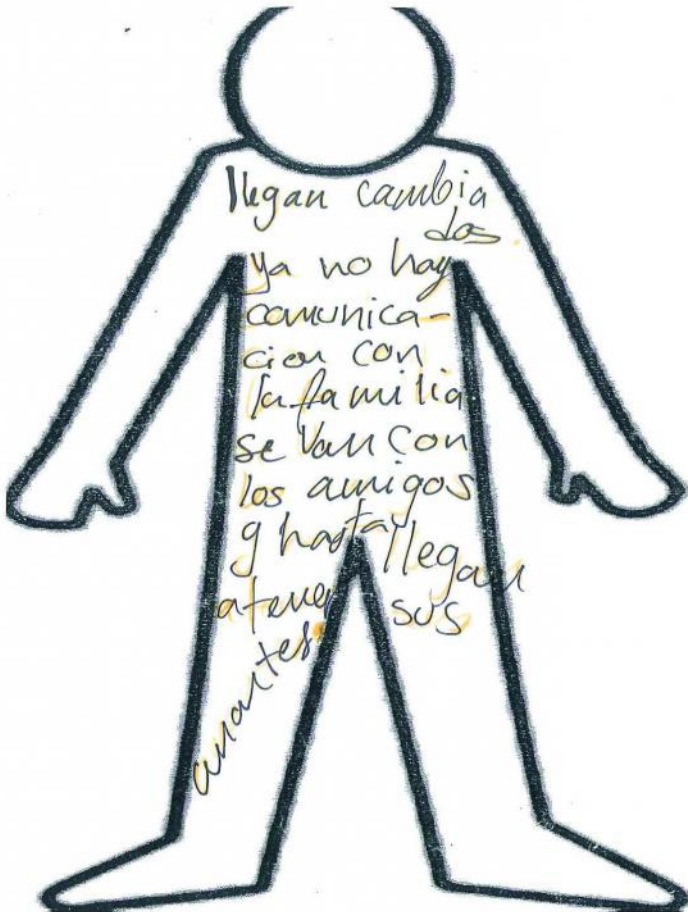 llegan cambia
dos
ya no hay
comunica-
cion con
la familia
se van con
los amigos
y hasta llegan
a tener sus
amantes.